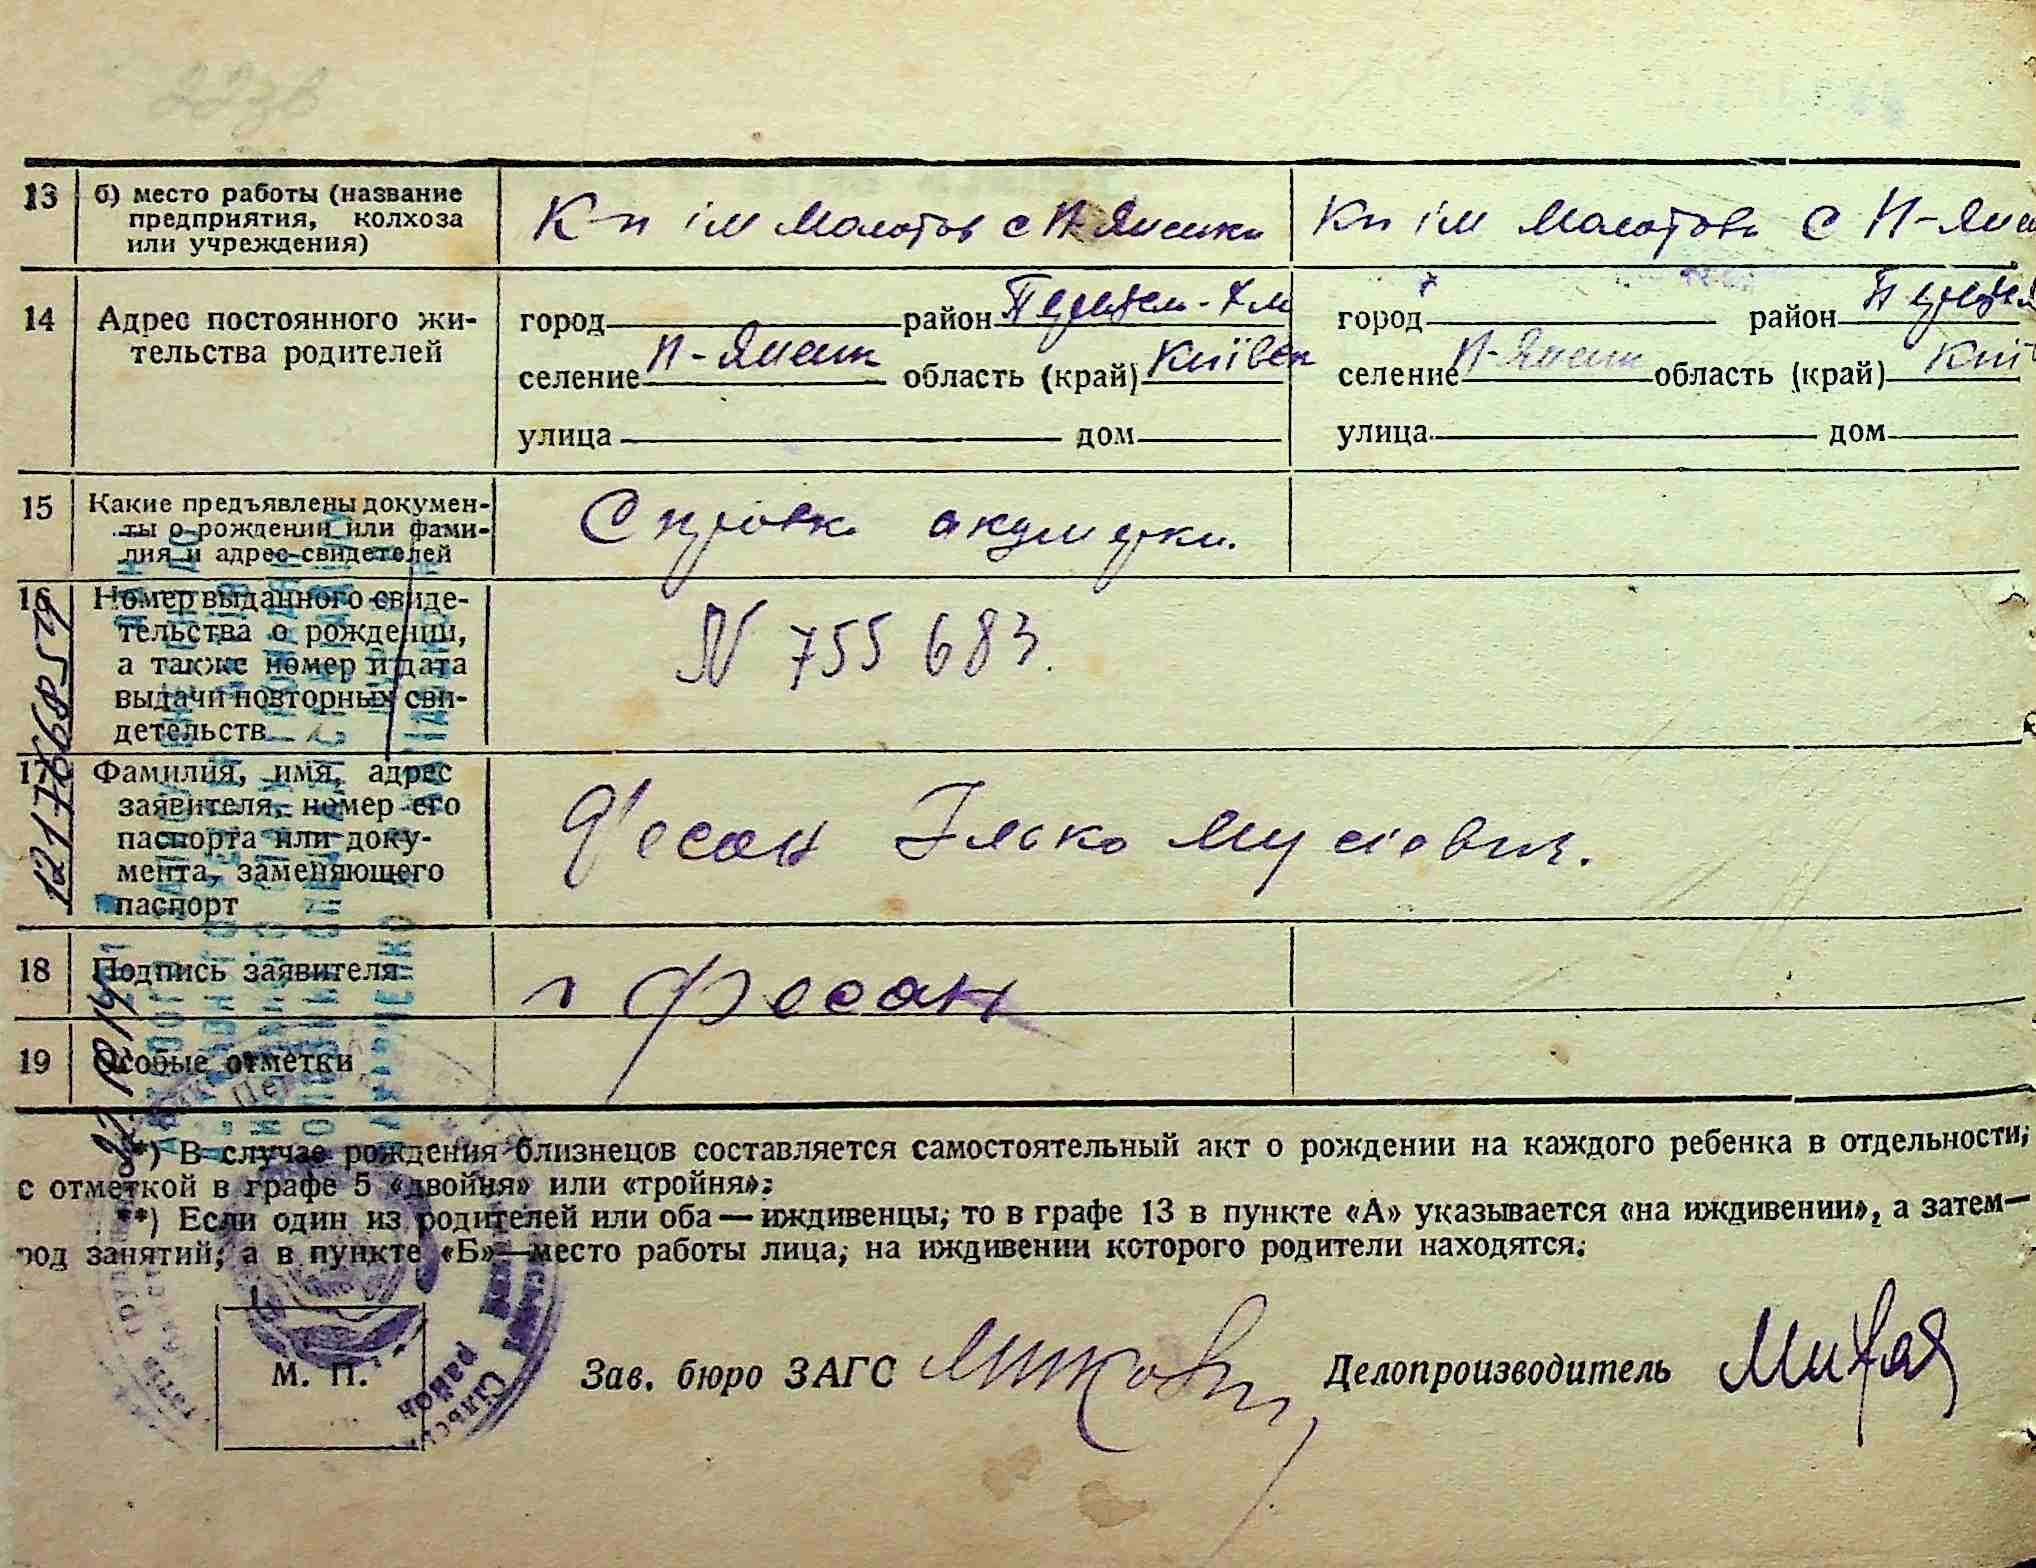 13 б) место работы (название
предприятия, колхоза
или учреждения)
К-п ім Молотов с П-Яненки
Кп ім Молотова с П-Яне
14 Адрес постоянного жи-
тельства родителей
город район
селение П-Яненк область (край) Київск
улица дом
город район
селение П-Яненк область (край) Киї
улица дом
15 Какие предъявлены докумен-
ты о рождении или фами-
лия и адрес свидетелей
Справка акушерки.
16 Номер выданного свиде-
тельства о рождении,
а также номер и дата
выдачи повторных сви-
детельств
N 755683.
17 Фамилия, имя, адрес
заявителя, номер его
паспорта или доку-
мента, заменяющего
паспорт
Фесан Ілько Мусіович.
18 Подпись заявителя
Фесан
19 Особые отметки
*) В случае рождения близнецов составляется самостоятельный акт о рождении на каждого ребенка в отдельности,
с отметкой в графе 5 «двойня» или «тройня»;
**) Если один из родителей или оба — иждивенцы, то в графе 13 в пункте «А» указывается «на иждивении», а затем—
род занятий, а в пункте «Б»—место работы лица, на иждивении которого родители находятся.
М. П.
Зав. бюро ЗАГС
Делопроизводитель
район